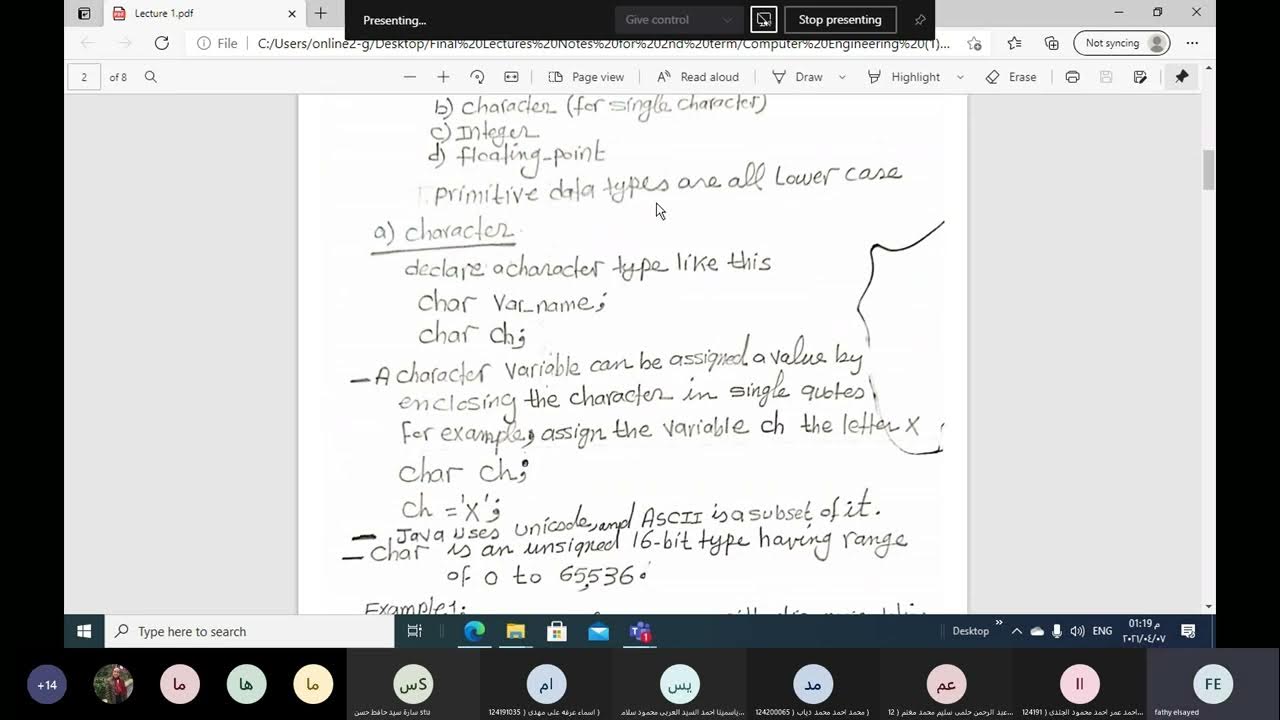 Lecture 1.pdf
Presenting...
Give control
Stop presenting
File
C:/Users/online2-g/Desktop/Final%20Lectures%20Notes%20for%202nd%20term/Computer%20Engineering%20(1)...
Not syncing
2 of 8
Page view
Read aloud
Draw
Highlight
Erase
b) character (for single character)
c) Integer
d) floating-point
primitive data types are all Lower case
a) character
declare a character type like this
char var_name;
char ch;
— A character variable can be assigned a value by
enclosing the character in single quotes
for example, assign the variable ch the letter X
char ch;
ch = 'X';
— Java uses unicode, and ASCII is a subset of it.
— char is an unsigned 16-bit type having range
of 0 to 65,536.
Example 1:
Type here to search
Desktop
ENG
01:19 م
٢٠٢١/٠٤/٠٧
+14
ما
ها
ما
سS
ام
يس
مد
عم
اا
FE
stu سارة سيد حافظ حسن
124191035 ( اسماء عرفه على مهدى )
ياسمينا احمد السيد العربى محمود سلام...
124200065 ( محمد احمد محمد دياب )
12 ( عبد الرحمن حلمى سليم محمد مغنم...
124191 ( احمد عمر احمد محمود الجلدى...
fathy elsayed